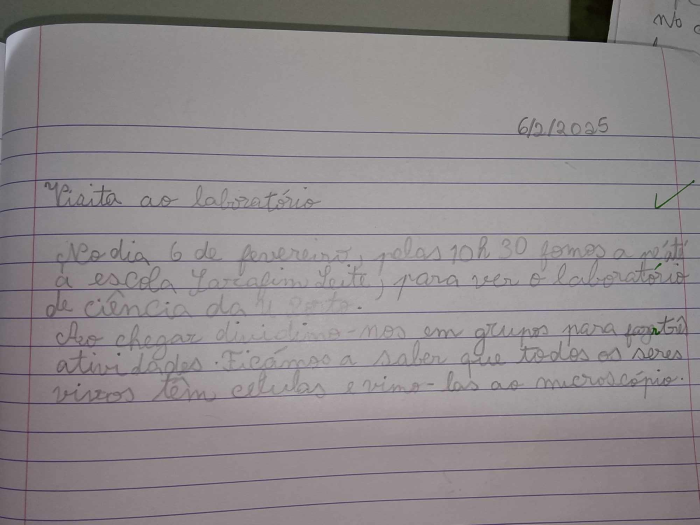 No
6/2/2025
Visita ao laboratório
No dia 6 de fevereiro, pelas 10h 30 fomos a pé até
à escola Sarrafim Leite, para ver o laboratório
de ciência da
Ao chegar dividimo-nos em grupos para
atividades. Ficámos a saber que todos os seres
vivos têm celulas e vimo-las ao microscópio.